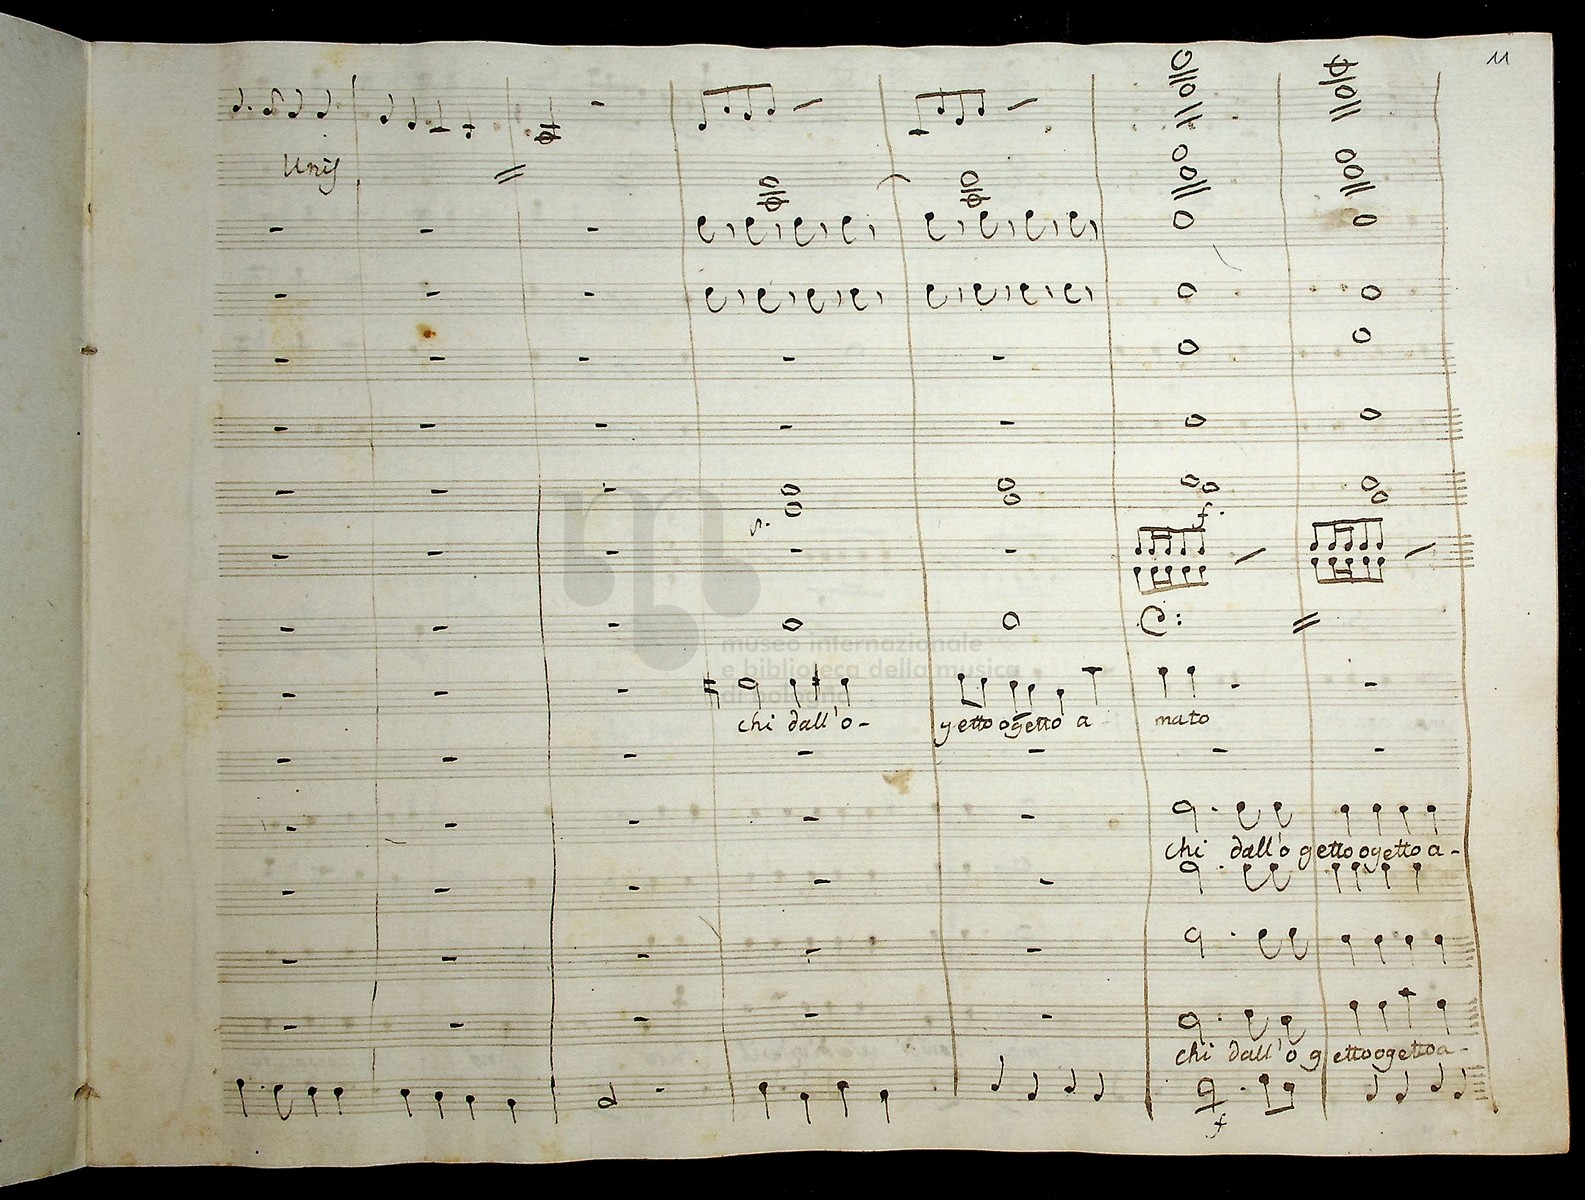 11
Unis
p.
f.
museo internazionale
e biblioteca della musica
di bologna
chi dall'o- getto ogetto a mato
chi dall'o getto ogetto a-
chi dall'o getto ogetto a-
f